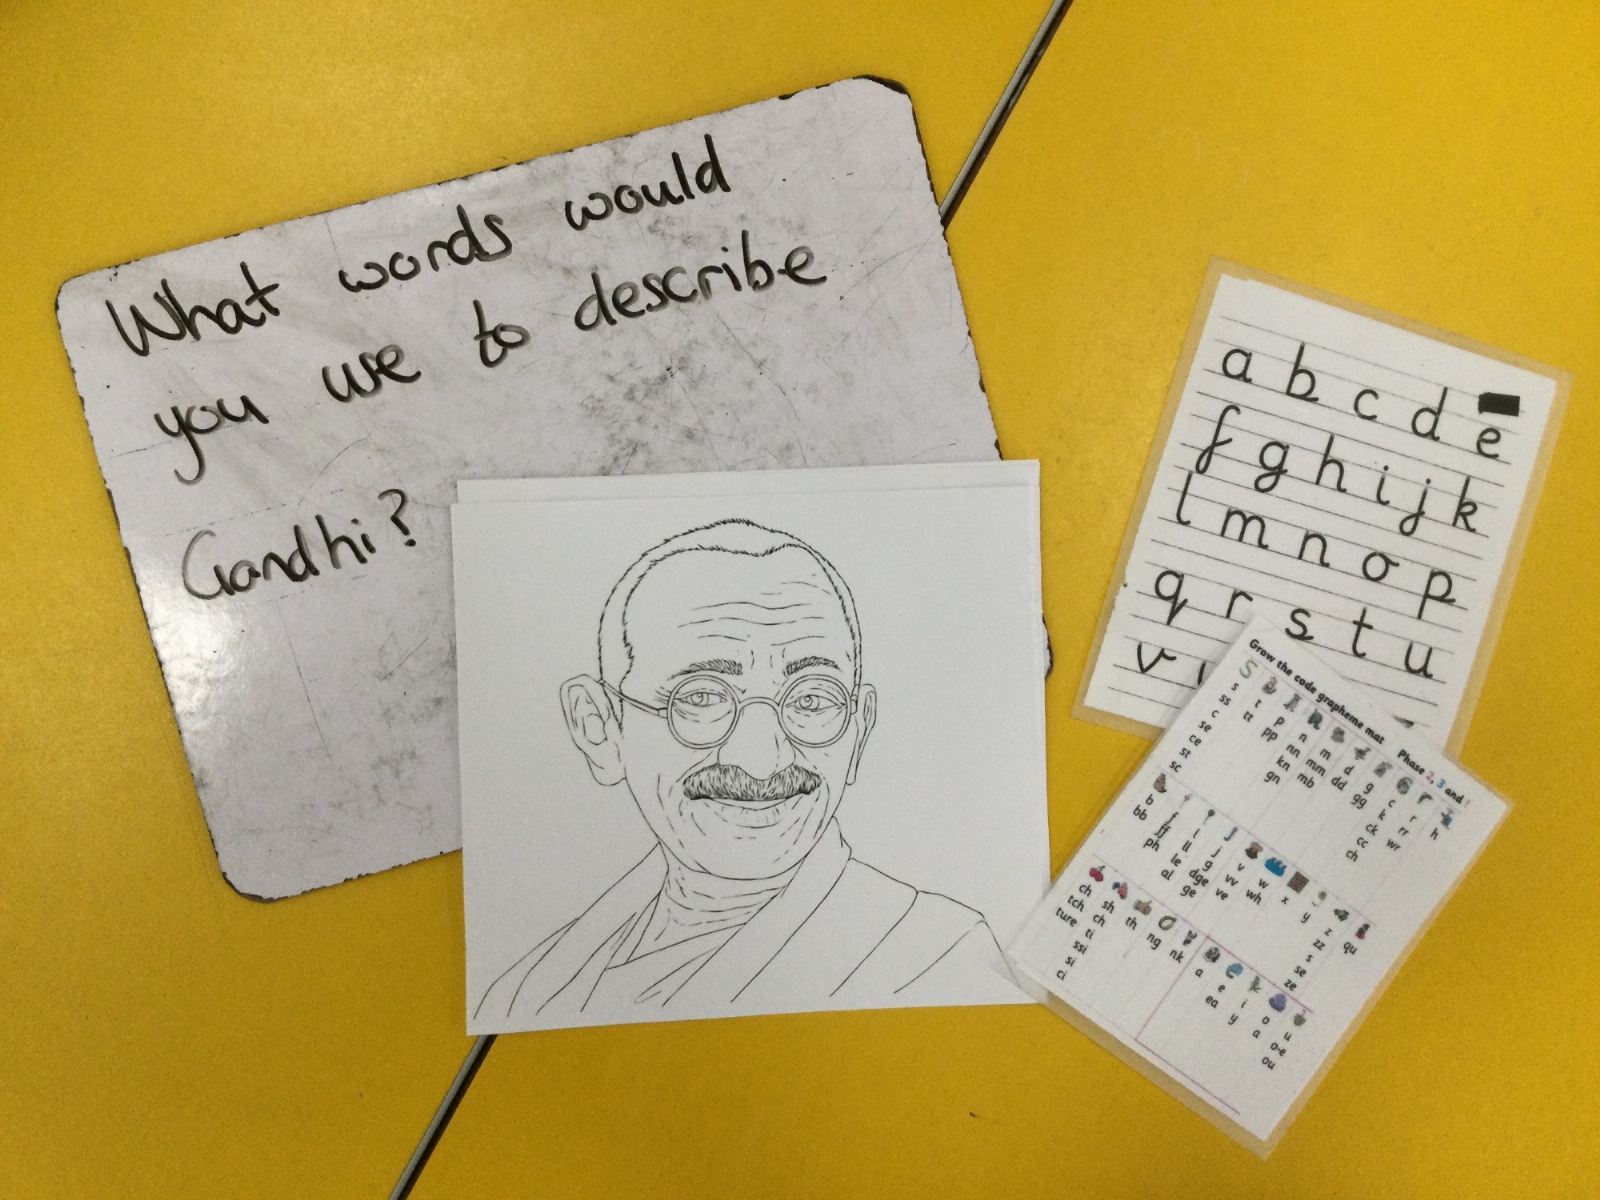 What words would
you use to describe
Gandhi?
a b c d e
f g h i j k
l m n o p
q r s t u
v
Grow the code grapheme mat Phase 2, 3 and
s t p n m d g c r h
ss tt pp nn mm dd gg k rr
c kn mb ck wr
se gn cc
ce ch
st
sc
b f l j v w x y z qu
bb ff ll g vv wh zz
ph le dge ve s
al ge se
ze
ch sh th ng nk a e i o u
tch ch ea y a o-e
ture ti ou
ssi
si
ci